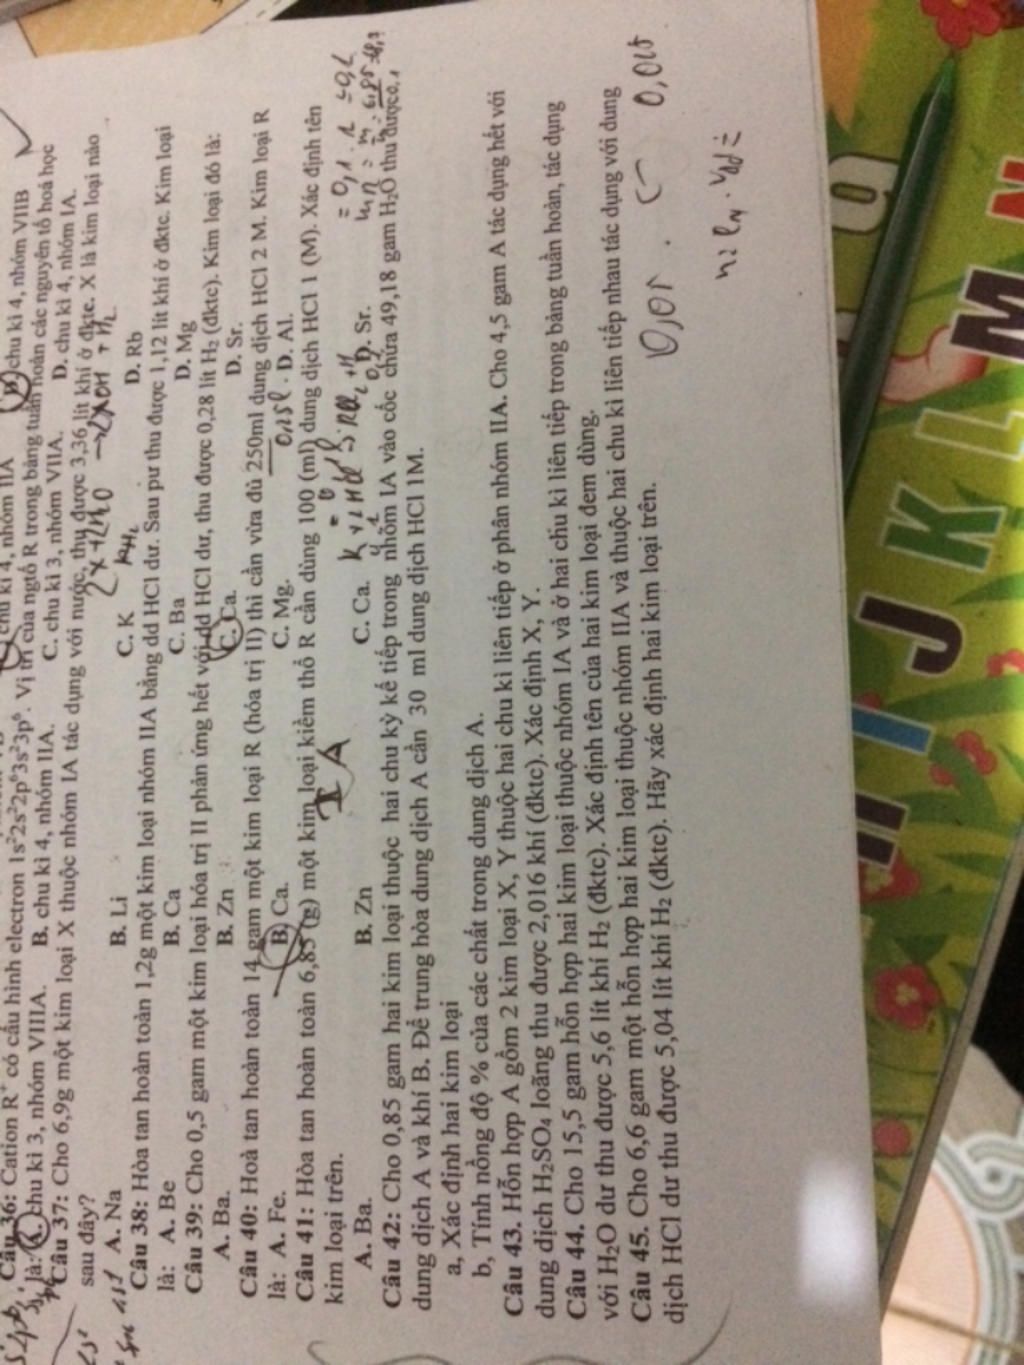 Câu 36: Cation R⁺ có cấu hình electron 1s²2s²2p⁶3s²3p⁶. Vị trí của ngtố R trong bảng tuần hoàn các nguyên tố hoá học
là: A. chu kì 3, nhóm VIIIA. B. chu kì 4, nhóm IIA. C. chu kì 3, nhóm VIIA. D. chu kì 4, nhóm IA.
Câu 37: Cho 6,9g một kim loại X thuộc nhóm IA tác dụng với nước, thu được 3,36 lít khí ở đktc. X là kim loại nào
sau đây?
A. Na B. Li C. K D. Rb
Câu 38: Hòa tan hoàn toàn 1,2g một kim loại nhóm IIA bằng dd HCl dư. Sau pư thu được 1,12 lít khí ở đktc. Kim loại
là: A. Be B. Ca C. Ba D. Mg
Câu 39: Cho 0,5 gam một kim loại hóa trị II phản ứng hết với dd HCl dư, thu được 0,28 lít H₂ (đktc). Kim loại đó là:
A. Ba. B. Zn C. Ca. D. Sr.
Câu 40: Hoà tan hoàn toàn 14 gam một kim loại R (hóa trị II) thì cần vừa đủ 250ml dung dịch HCl 2 M. Kim loại R
là: A. Fe. B. Ca. C. Mg. D. Al.
0,25l
Câu 41: Hòa tan hoàn toàn 6,85 (g) một kim loại kiềm thổ R cần dùng 100 (ml) dung dịch HCl 1 (M). Xác định tên
kim loại trên.
II A
A. Ba. B. Zn C. Ca. D. Sr.
Câu 42: Cho 0,85 gam hai kim loại thuộc hai chu kỳ kế tiếp trong nhóm IA vào cốc chứa 49,18 gam H₂O thu được
dung dịch A và khí B. Để trung hòa dung dịch A cần 30 ml dung dịch HCl 1M.
a, Xác định hai kim loại
b, Tính nồng độ % của các chất trong dung dịch A.
Câu 43. Hỗn hợp A gồm 2 kim loại X, Y thuộc hai chu kì liên tiếp ở phân nhóm IIA. Cho 4,5 gam A tác dụng hết với
dung dịch H₂SO₄ loãng thu được 2,016 khí (đktc). Xác định X, Y.
Câu 44. Cho 15,5 gam hỗn hợp hai kim loại thuộc nhóm IA và ở hai chu kì liên tiếp trong bảng tuần hoàn, tác dụng
với H₂O dư thu được 5,6 lít khí H₂ (đktc). Xác định tên của hai kim loại đem dùng.
Câu 45. Cho 6,6 gam một hỗn hợp hai kim loại thuộc nhóm IIA và thuộc hai chu kì liên tiếp nhau tác dụng với dung
dịch HCl dư thu được 5,04 lít khí H₂ (đktc). Hãy xác định hai kim loại trên.
I J K L M N